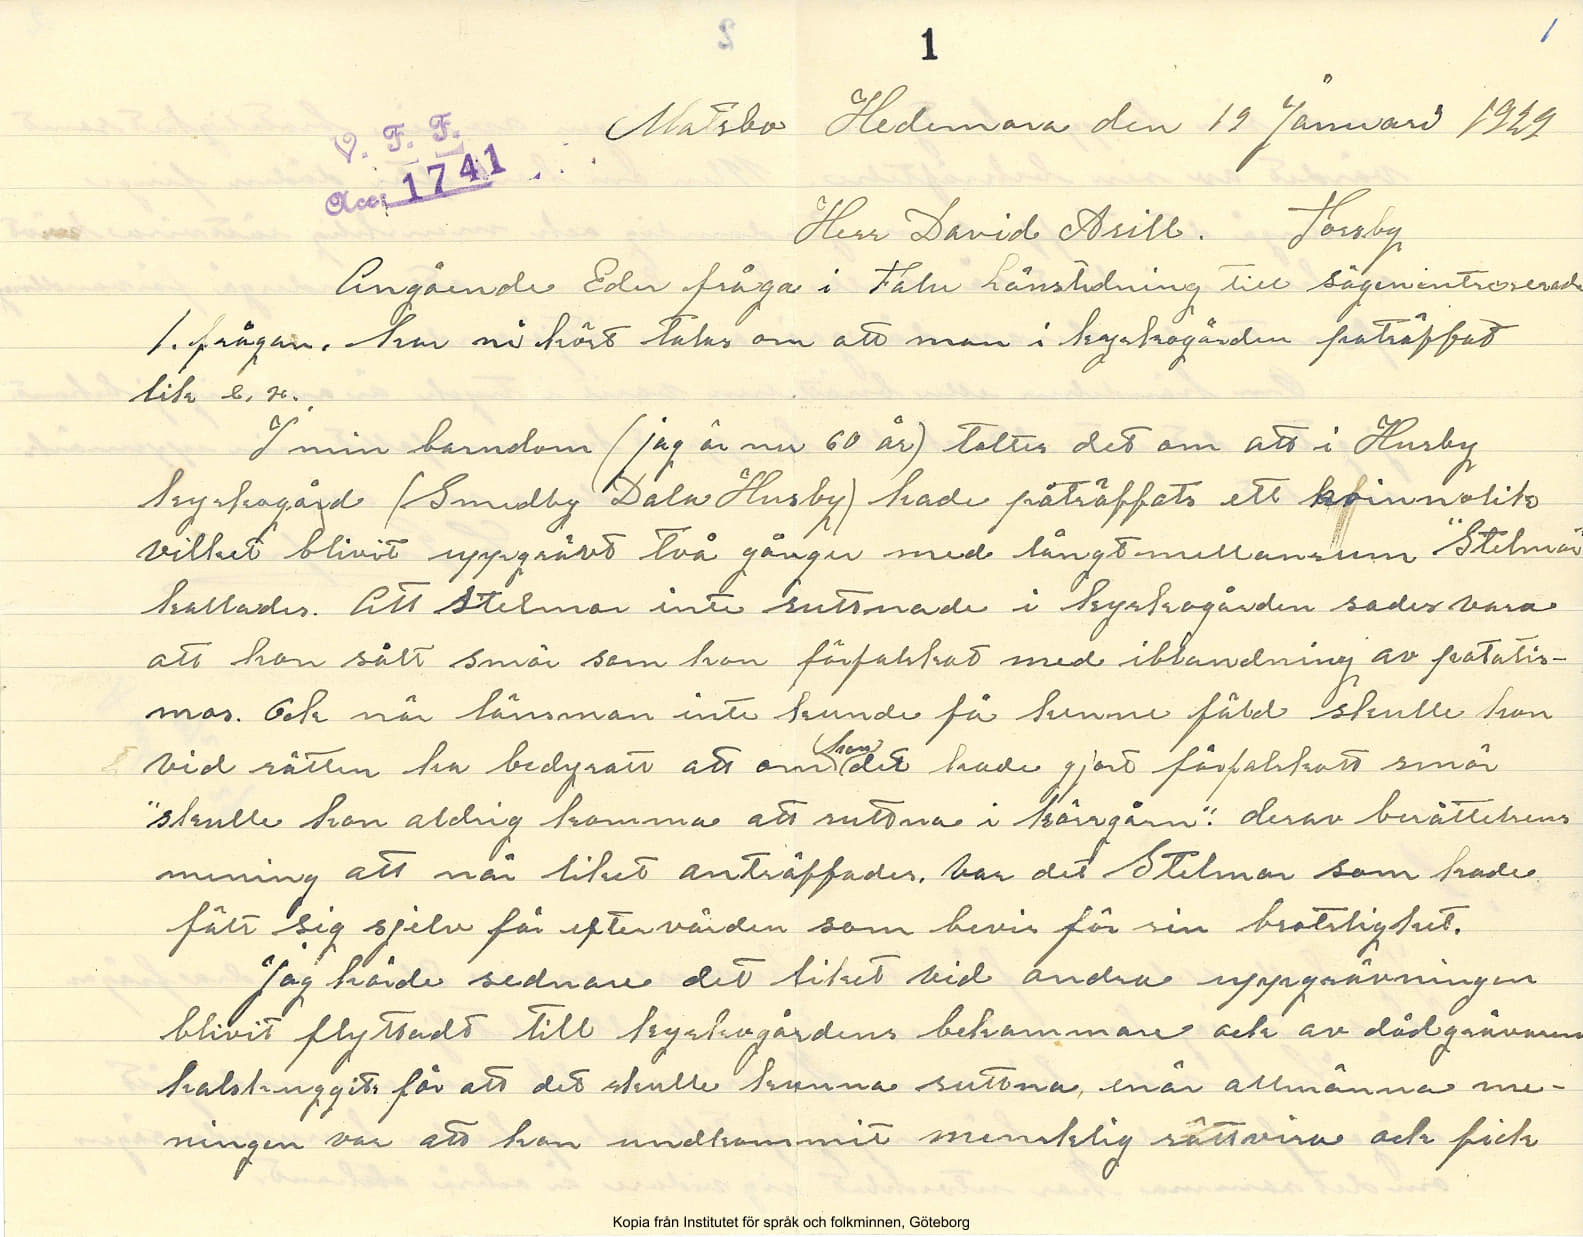 1
1
V. F. F.
Acc. 1741
Matsbo Hedemora den 19 Januari 1929
Herr David Arill. Torsby
Angående Eder fråga i Falu Länstidning till sägenintreserade
1. frågan. har ni hört talas om att man i kyrkogården påträffat
lik e. x.
I min barndom (jag är nu 60 år) taltes det om att i Husby
kyrkogård (Smedby Dala Husby) hade påträffats ett kvinnolik
vilket blivit uppgrävt två gånger med långt mellanrum "Stelmor"
kallades. Att Stelmor inte ruttnade i kyrkogården sades vara
att hon sålt smör som hon förfalskat med iblandning av potatis-
mos. Och när länsman inte kunde få henne fäld skulle hon
vid rätten ha bedyratt att om hon det hade gjort förfalskatt smör
"skulle hon aldrig komma att ruttna i körrgårn". derav berättelsens
mening att när liket anträffades. var det Stelmor som hade
fått sig sjelv för eftervärden som bevis för sin brotslighet.
Jag hörde sednare det liket vid andra uppgrävningen
blivit flyttadt till kyrkogårdens bekammare ock av dödgrävaren
halshuggits för att det skulle kunna ruttna, enär allmänna me-
ningen var att hon undkommit mensklig rättvisa ock fick
Kopia från Institutet för språk och folkminnen, Göteborg